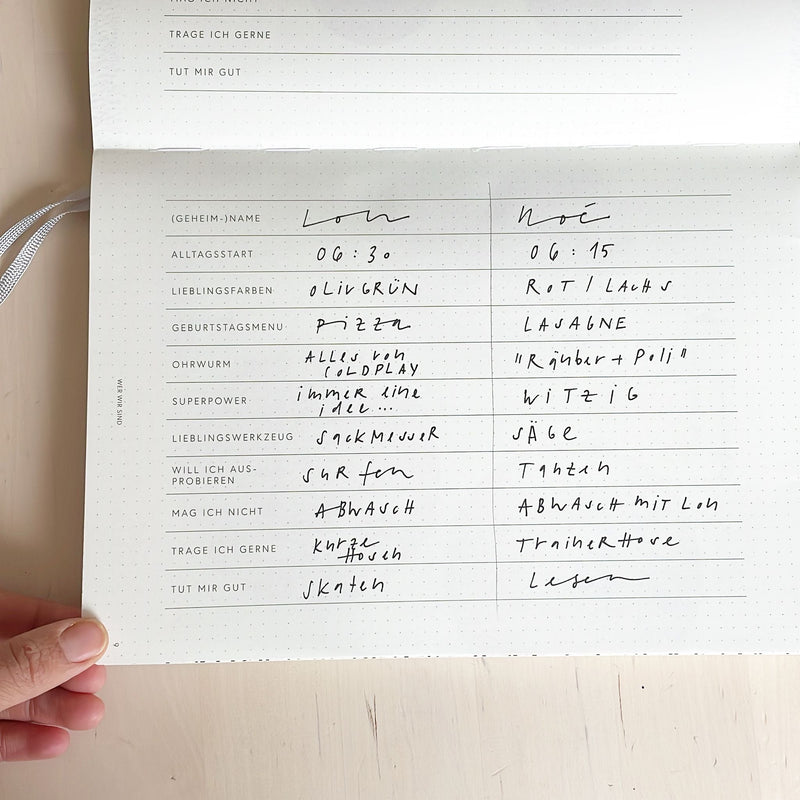 MAG ICH NICHT
TRAGE ICH GERNE
TUT MIR GUT
(GEHEIM-)NAME Lou Noé
ALLTAGSSTART 06:30 06:15
LIEBLINGSFARBEN OLIVGRÜN ROT / LACHS
GEBURTSTAGSMENU Pizza LASAGNE
OHRWURM ALLES von "Räuber + Poli"
COLDPLAY
SUPERPOWER immer eine WITZIG
idee...
LIEBLINGSWERKZEUG SackMesseR SÄGe
WILL ICH AUS- SURfen Tanzen
PROBIEREN
MAG ICH NICHT ABWASCH ABWASCH MIT Lou
TRAGE ICH GERNE Kurze TraineRHose
Hosen
TUT MIR GUT Skaten Lesen
WER WIR SIND
9